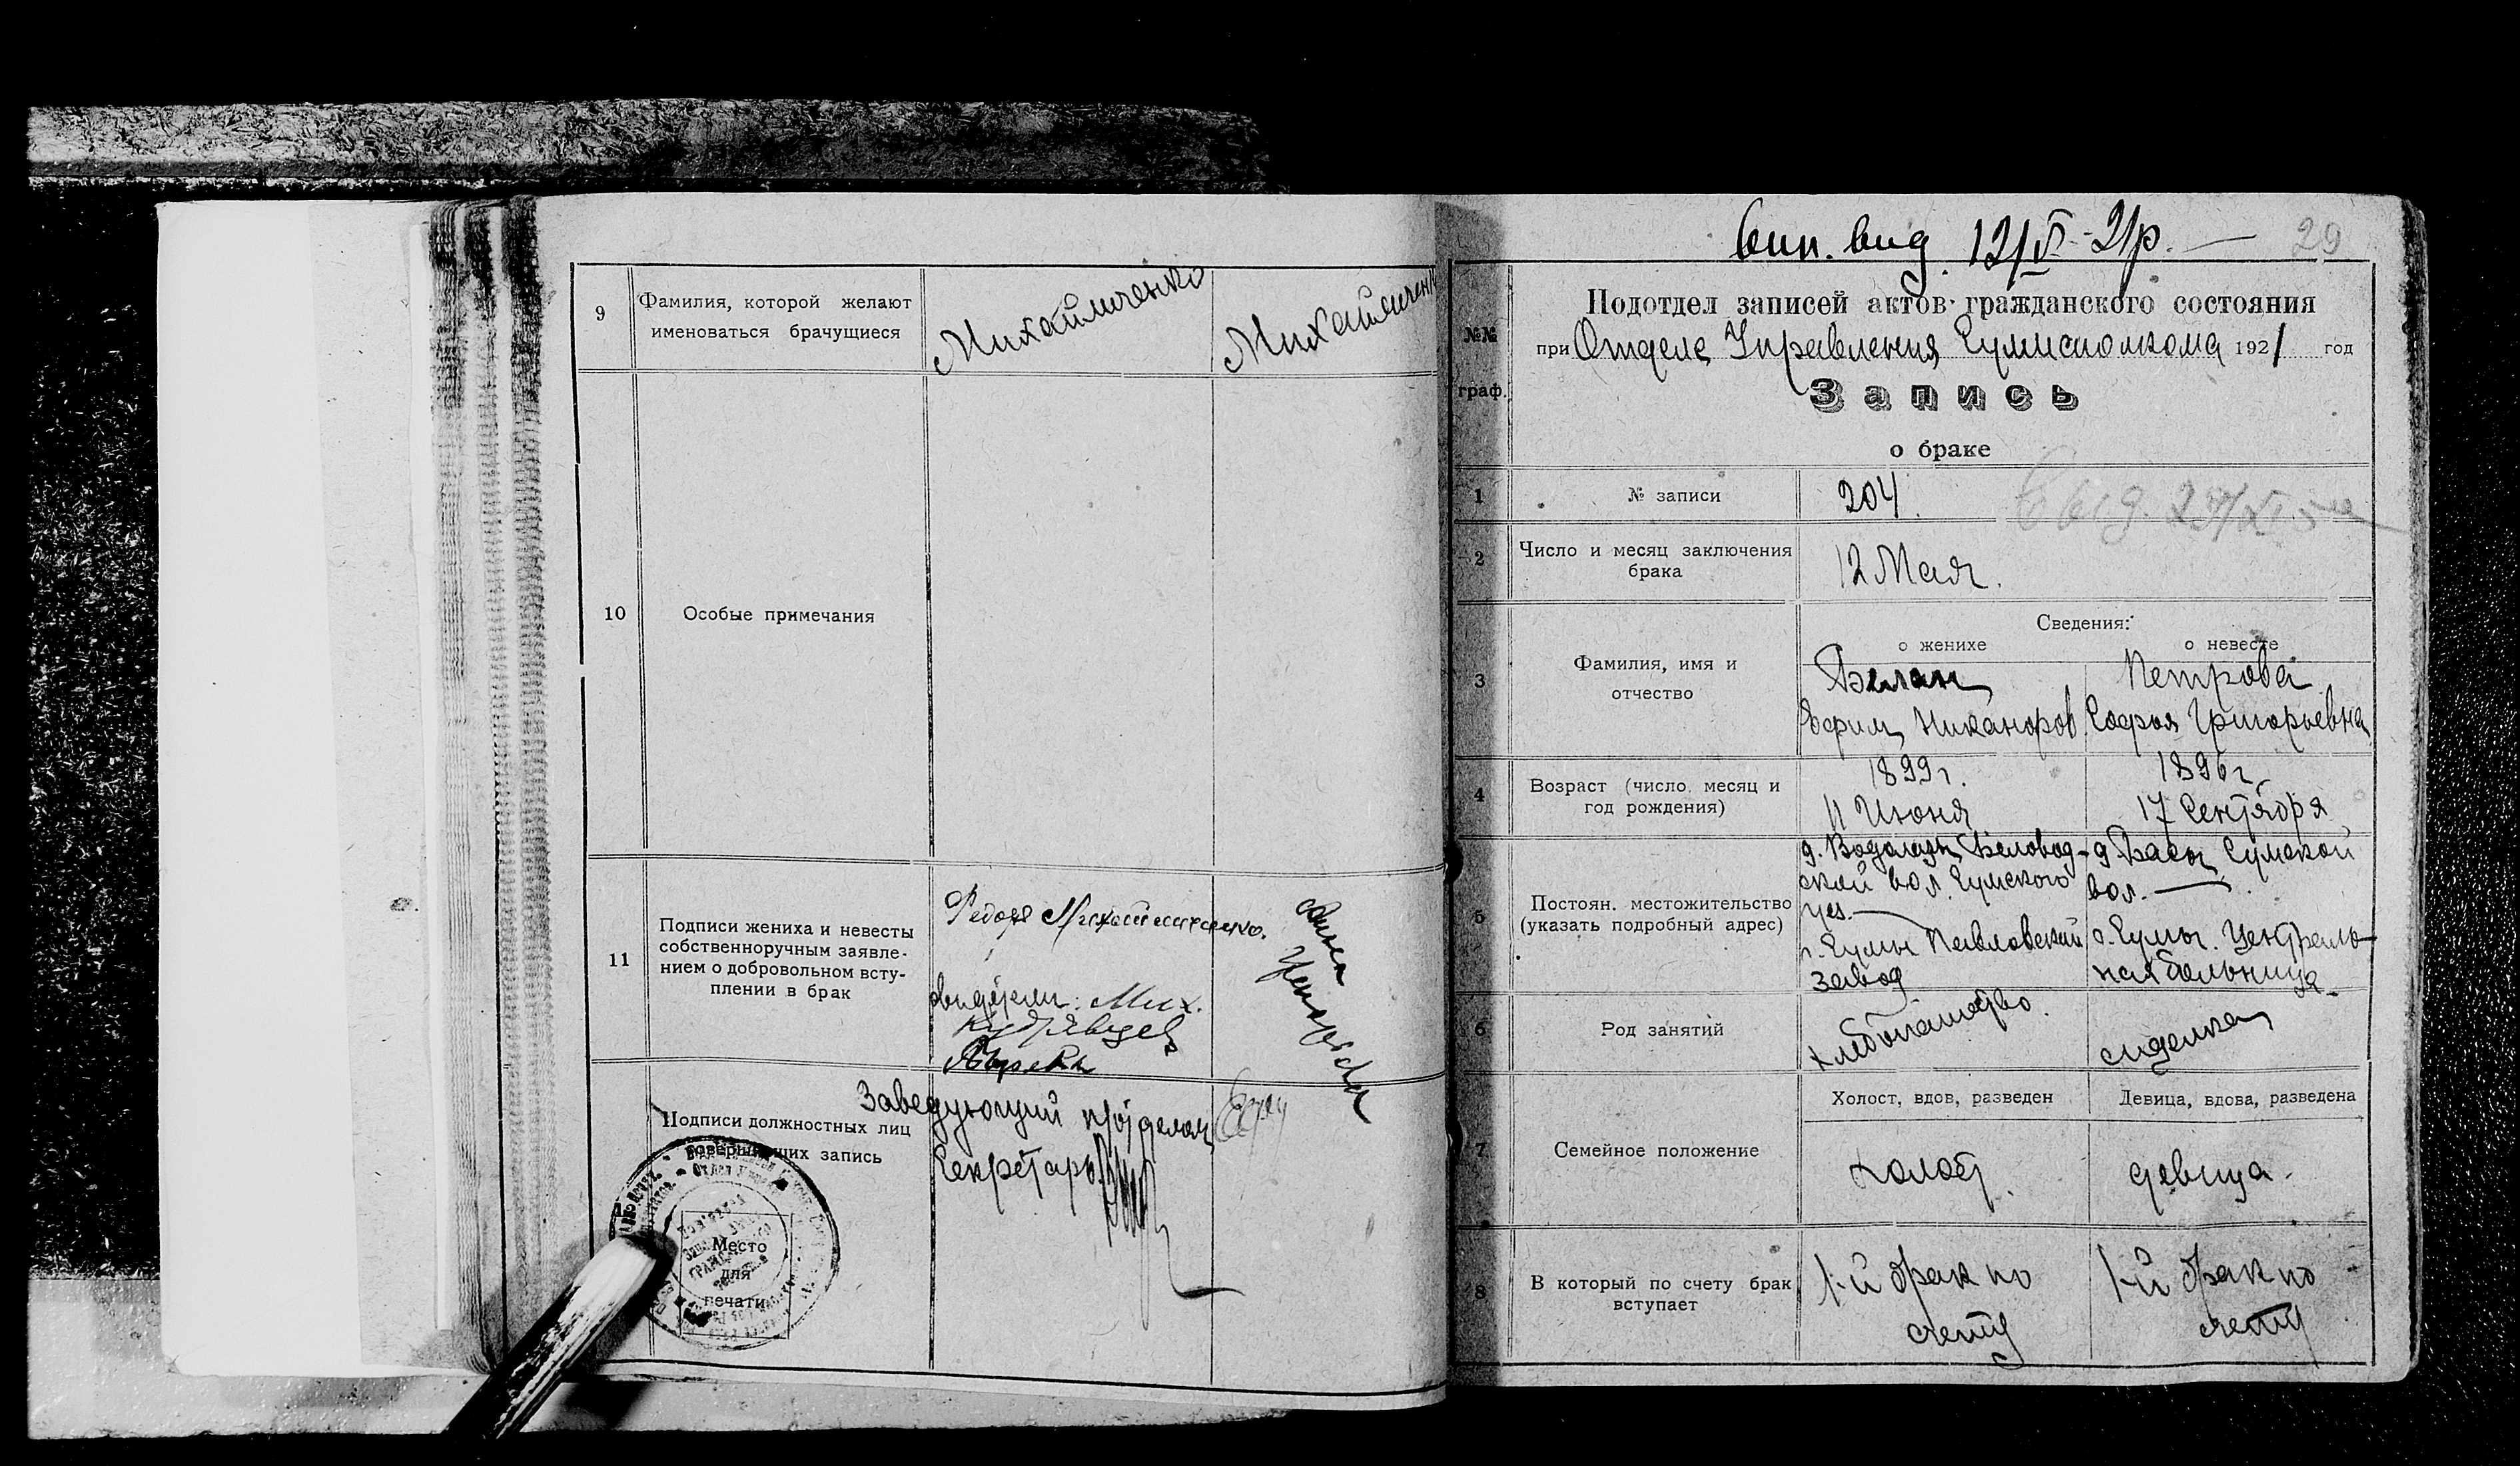 9
Фамилия, которой желают
именоваться брачущиеся
Михайличенко
Михайличенко
10
Особые примечания
11
Подписи жениха и невесты
собственноручным заявле-
нием о добровольном всту-
плении в брак
Федор Михайличенко.
свидетели: Мих.
Кудрявцев
Анна
Заведующий п/отделом
Подписи должностных лиц
совершивших запись
Секретарь
Место
для
печати
вып. вид. 12/V-21р.
29
Подотдел записей актов гражданского состояния
№№
граф.
при Отделе Управления Сумисполкома 1921 год
Запись
о браке
1
№ записи
204.
выд.
2
Число и месяц заключения
брака
12 Мая.
Сведения:
о женихе
о невесте
3
Фамилия, имя и
отчество
Белан
Ефим Никаноров
Петрова
Софья Григорьевна
4
Возраст (число, месяц и
год рождения)
1899г.
11 Июня
1896г.
17 Сентября
5
Постоян. местожительство
(указать подробный адрес)
д. Водолаги Беловод-
ской вол. Сумского
уез.
г. Сумы Павловский
завод
д. Басы Сумской
вол.
г. Сумы. Централь-
ная больница
6
Род занятий
хлебопашество.
сиделка
7
Семейное положение
Холост, вдов, разведен
Девица, вдова, разведена
холост.
девица.
8
В который по счету брак
вступает
1-й брак по
счету
1-й брак по
счету